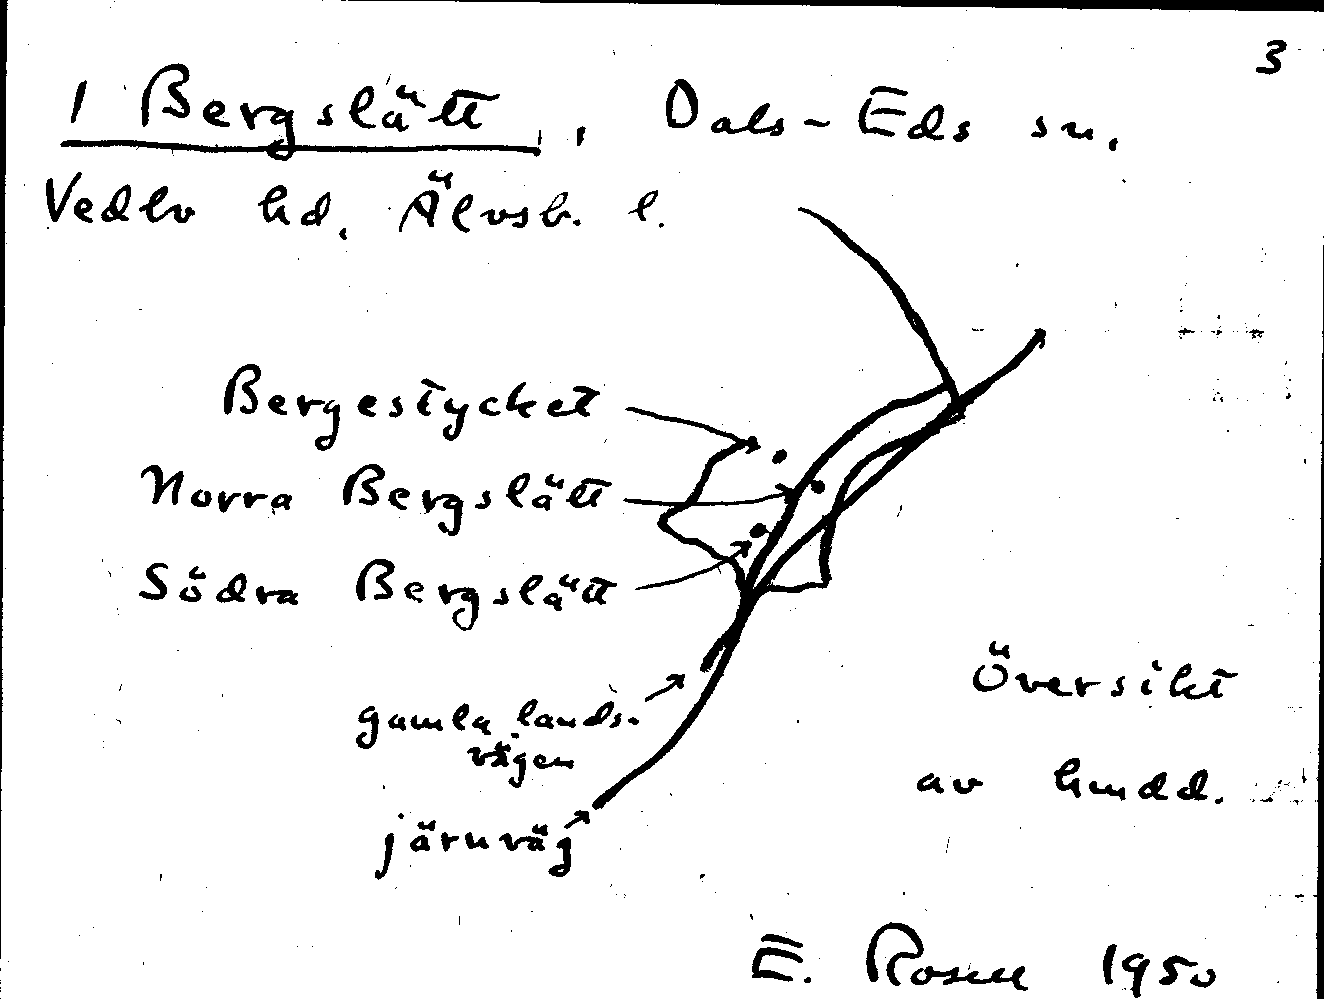 3
1 Bergslätt, Dals-Eds sn.
Vedbo hd. Älvsb. l.
Bergestycket
Norra Bergslätt
Södra Bergslätt
gamla lands-
vägen
järnväg
Översikt
av hmdd.
E. Rosell 1950